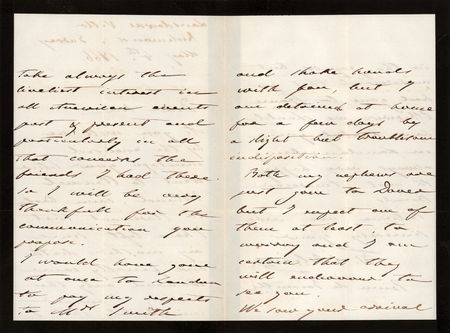 take always the
liveliest interest in
all American events
past & present and
particularly in all
that concerns the
friends I had there.
So I will be very
thankfull for the
communication you
propose.
I would have gone
at once to London
to pay my respects
to Mrs Smith
and shake hands
with you, but I
am detained at home
for a few days by
a slight but troublesome
indisposition.
Both my nephews are
just gone to Dover
but I expect one of
them at least to
morrow and I am
certain that they
will endeavour to
see you.
We saw your arrival